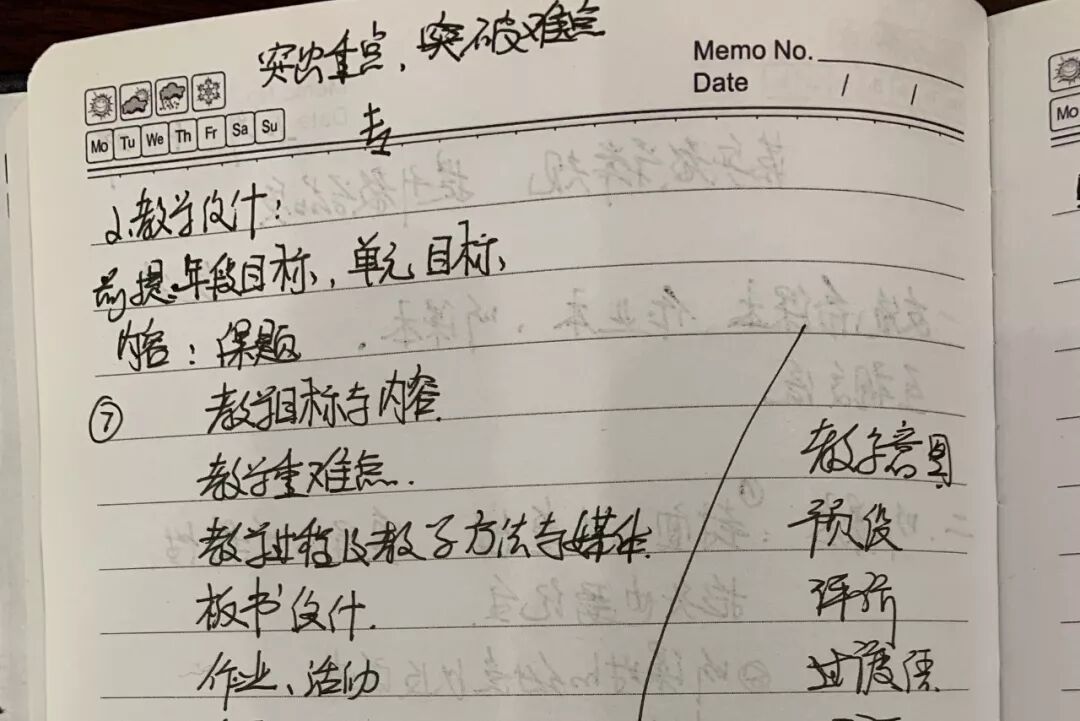 突出重点，突破难点
Memo No.
Date / /
Mo Tu We Th Fr Sa Su
2.教学设计：
前提：年段目标，单元目标，
内容：课题
⑦ 教学目标与内容.
教学重难点.
教学意图
教学过程及教学方法与媒体.
预设
板书设计.
评价
作业、活动
过渡语
Mo